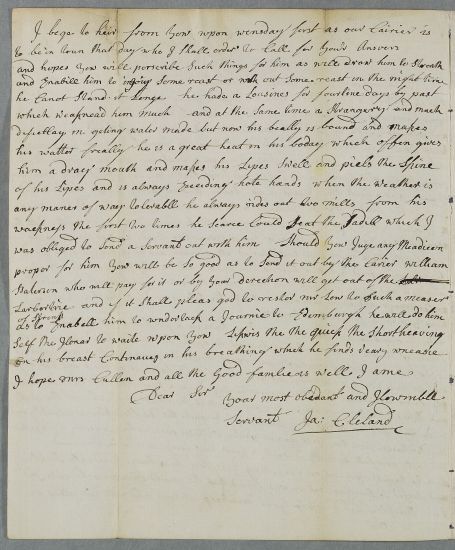 I bege to heir from yow wpon wensday first as our Cairier is
to be in toun that day who I shall order to Call for your Answer
and hopes yow will perscribe Such things for him as will draw him to Streath
and Enabill him to injoy Some reast or with out Some reast in the night time
he Canot Stand it Longe he hade a Lousines for fourtine days by past
which weakned him much and at the same time a Strangery and much
dificullay in geting water made but now his bealley is bound and makes
his watter freally he is a great heat in his bodey which offen gives
him a dray mouth and makes his Lipes Swell and piels the Skine
of his Lipes and is always Exciding hote hands when the weather is
any maner of way tolerabll he always rides out two mills from his
weakness the first two times he scarce Could Seat the Sadell which I
was obliged to Send a Servant out with him Should yow Juge any Medicen
proper for him yow will be so good as to Send it out by the Carier william
who will pay for it or by your derection will get out of the
and if it Shall pleas god to restor mr Low to Such a measer
of Strong
as to Enabell him to underteck a Journie to Edenburgh he will do him
Self the Honer to waite wpon yow Lipwis the the quick the Short heaving
on his breast Continues in his breathing which he finds veary uneasie
I hope mrs Cullen and all the Good familie is well I ame
Dear Sir
your most obedant and Howmble
Servant Ja: Cleland